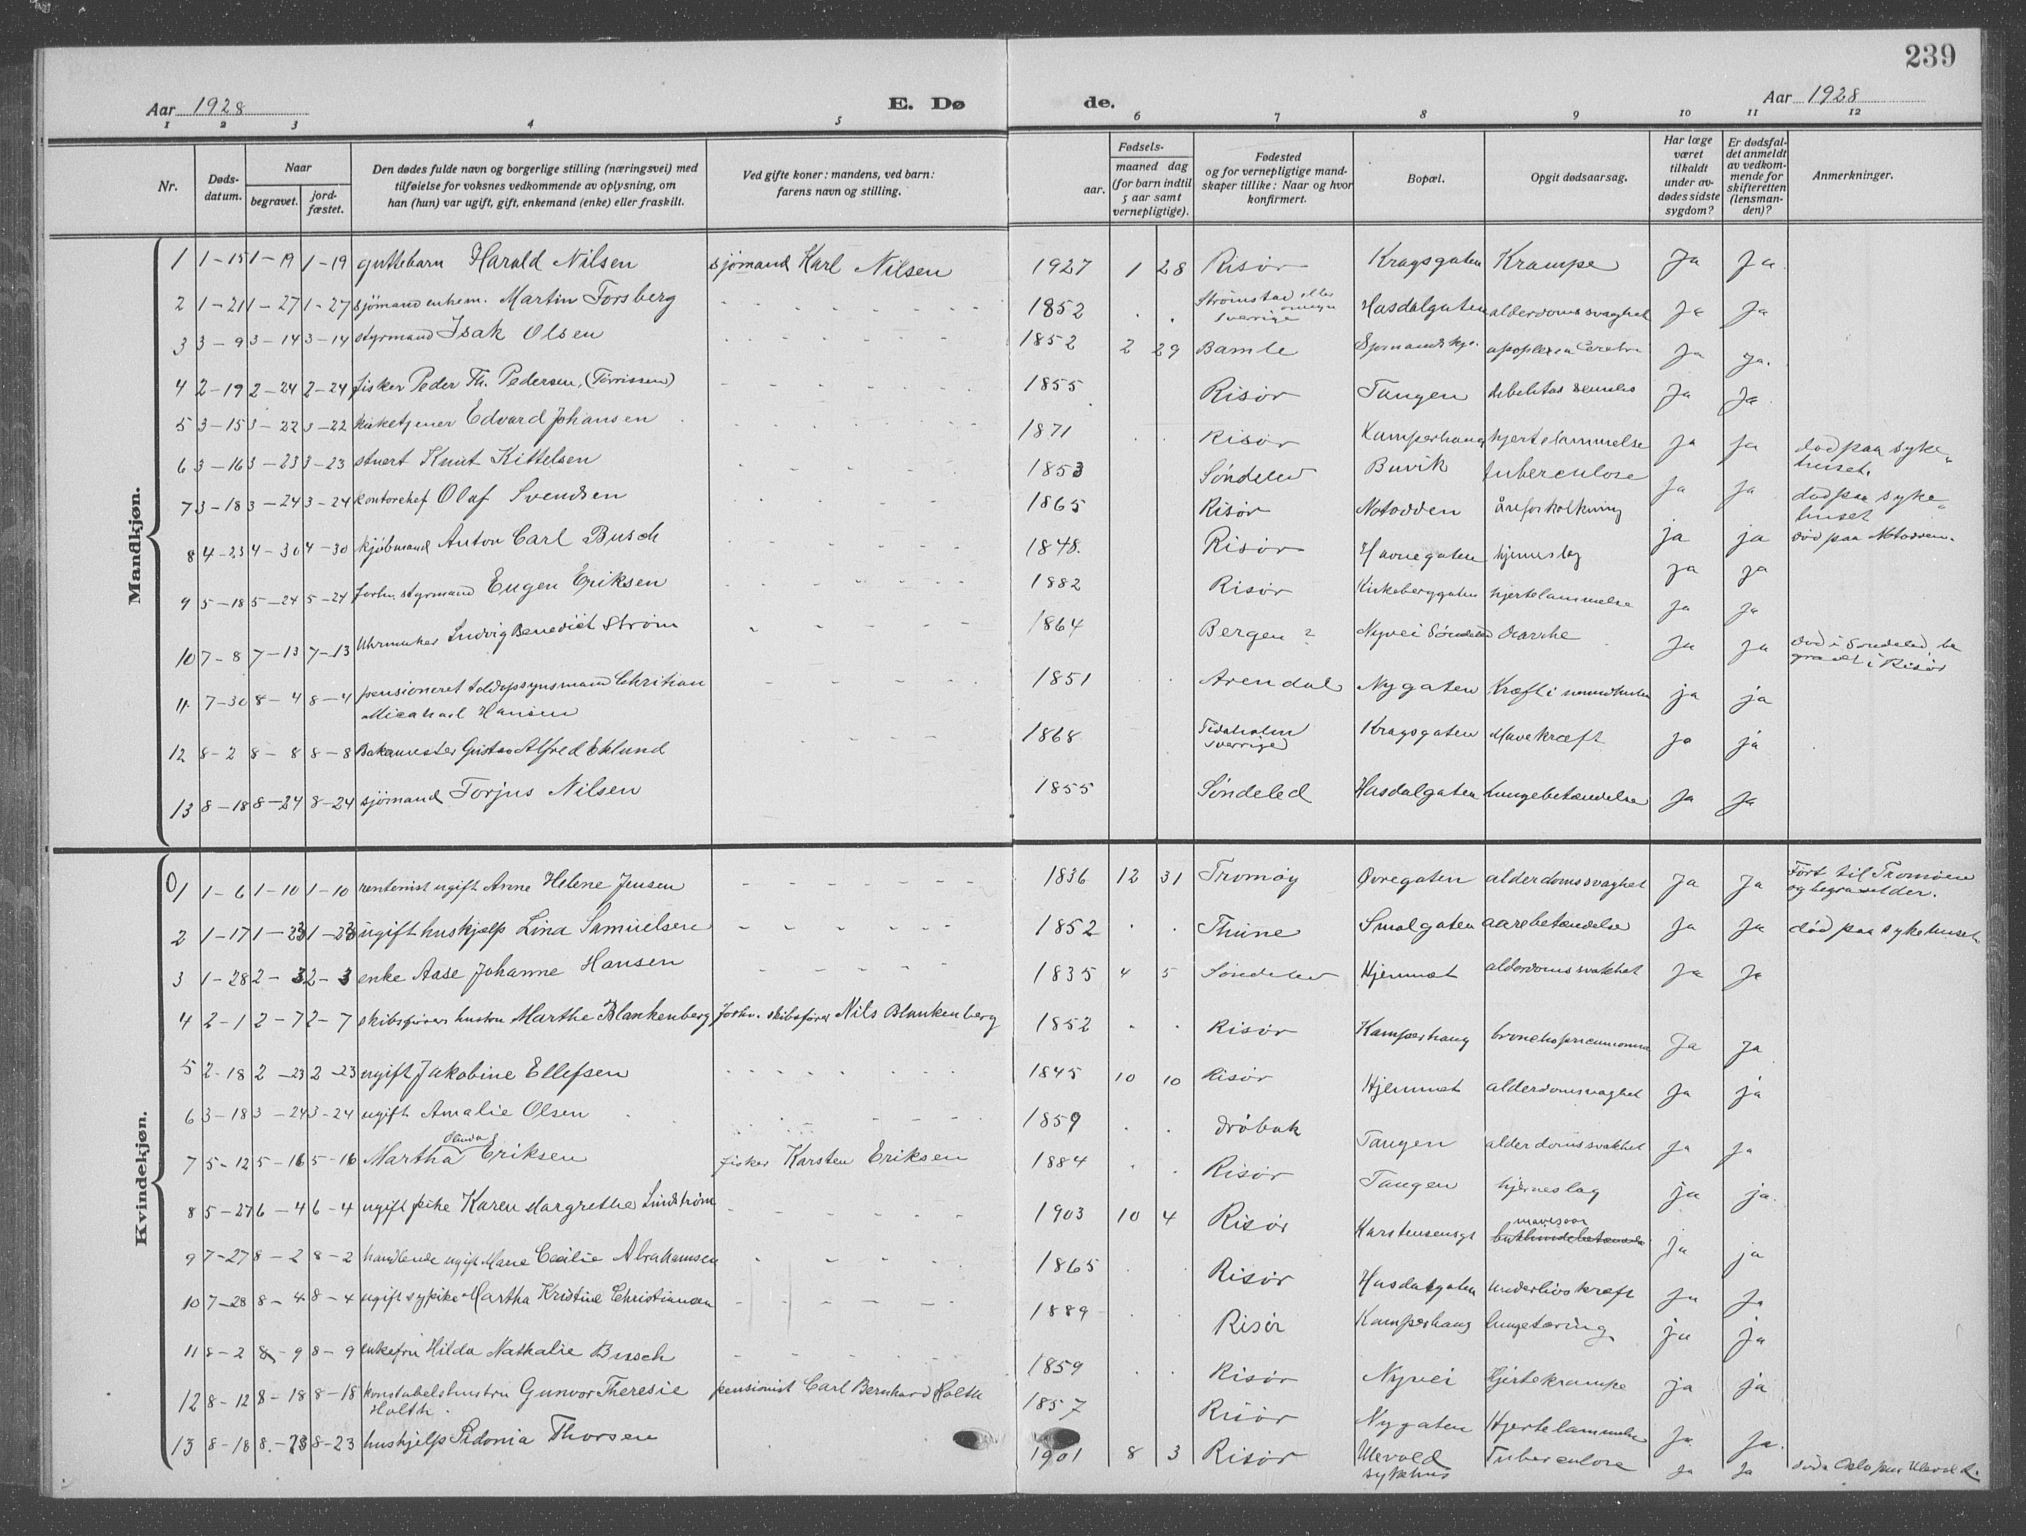 239
Aar 1928 E. Dø de. Aar 1928
1 2 3 4 5 6 7 8 9 10 11 12
Nr. Døds-datum. Naar begravet. jord-fæstet. Den dødes fulde navn og borgerlige stilling (næringsvei) med tilføielse for voksnes vedkommende av oplysning, om han (hun) var ugift, gift, enkemand (enke) eller fraskilt. Ved gifte koner: mandens, ved barn: farens navn og stilling. Fødsels- aar. maaned dag (for barn indtil 5 aar samt vernepligtige). Fødested og for vernepligtige mandskaper tillike: Naar og hvor konfirmert. Bopæl. Opgit dødsaarsag. Har læge været tilkaldt under avdødes sidste sygdom? Er dødsfaldet anmeldt av vedkommende for skifteretten (lensmanden)? Anmerkninger.
Mandkjøn.
1 1-15 1-19 1-19 guttebarn Harald Nilsen sjømand Karl Nilsen 1927 1 28 Risør Kragsgaten Krampe Ja Ja
2 1-21 1-27 1-27 sjømand enkem. Martin Forsberg 1852 Strømstad eller omegn Sverrige Hasdalgaten alderdomssvaghet Ja Ja
3 3-9 3-14 3-14 styrmand Isak Olsen 1852 2 29 Bamle apoplexia Cerebri Ja Ja.
4 2-19 2-24 2-24 fisker Peder Th. Pedersen, (Tørrissen) 1855 Risør Tangen debilitas senilis Ja Ja
5 3-15 3-22 3-22 kirketjener Edvard Johansen 1871 Risør Kamperhaug hjertelammelse Ja Ja død paa sykehuset.
6 3-16 3-23 3-23 stuert Knut Kittelsen 1853 Søndeled Buvik tuberculose Ja Ja død paa sykehuset
7 3-18 3-24 3-24 kontorchef Olaf Svendsen 1865 Risør Notodden åreforkalkning ja ja død paa Notodden.
8 4-23 4-30 4-30 kjøbmand Anton Carl Busch 1848. Risør Havnegaten hjerneslag ja ja
9 5-18 5-24 5-24 forhv. styrmand Eugen Eriksen 1882 Risør Kirkeberggaten hjertelammelse Ja Ja
10 7-8 7-13 7-13 Uhrmaker Ludvig Benedict Strøm 1864 Bergen? Nyvei Søndeled Ja Ja død i Søndeled, begravet i Risør
11 7-30 8-4 8-4 pensioneret toldopsynsmand Christian Micahael Hansen 1851 Arendal Nygaten Kræft i ja ja
12 8-2 8-8 8-8 Bakermester Gustav Alfred Eklund 1868 Tidaholm Sverrige Kragsgaten Mavekræft ja ja
13 8-18 8-24 8-24 sjømand Torjus Nilsen 1855 Søndeled Hasdalgaten Lungebetændelse Ja Ja
Kvindekjøn.
1 1-6 1-10 1-10 rentenist ugift Anne Helene Jensen 1836 12 31 Tromøy Øvregaten alderdomssvaghet Ja Ja Ført til Tromøen og begravet der.
2 1-17 1-23 1-23 ugift huskjelp Lina Samuelsen 1852 Thune Smalgaten aarebetændelse Ja Ja død paa sykehuset
3 1-28 2-3 2-3 enke Aase Johanne Hansen 1835 4 5 Søndeled Hjemmet alderdomssvakhet Ja Ja
4 2-1 2-7 2-7 skibsførers hustru Marthe Blankenberg forhv. skibsfører Nils Blankenberg 1852 Risør Kamperhaug bronchopneumonia Ja Ja
5 2-18 2-23 2-23 ugift Jakobine Ellefsen 1845 10 10 Risør Hjemmet alderdomsvaghet Ja ja
6 3-18 3-24 3-24 ugift Amalie Olsen 1859 Drøbak Tangen alderdomssvakhet Ja Ja
7 5-12 5-16 5-16 Martha Olinda Eriksen fisker Karsten Eriksen 1884 Risør Tangen hjerneslag ja ja.
8 5-27 6-4 6-4 ugift pike Karen Margrethe Lindstrøm 1903 10 4 Risør Karstensensgt mavesaar ja ja
9 7-27 8-2 8-2 handlende ugift Marie Cecilie Abrahamsen 1865 Risør Hasdalgaten underlivskræft Ja Ja
10 7-28 8-4 8-4 ugift sypike Martha Kristine Christiansen 1889 Risør Kamperhaug lungetæring ja ja
11 8-2 8-9 8-9 enkefru Hilda Nathalie Busch 1859 Risør Nyvei Hjertekrampe ja ja
12 8-12 8-18 8-18 konstabelshustru Gunvor Theresie Holth. pensionist Carl Bernhard Holth 1857 Risør Nygaten Hjertelammelse Ja Ja.
13 8-18 8-23 8-23 hushjelp Sidonia Thorsen 1901 8 3 Risør Ulevold sykehus Tuberculose Ja Ja død i Oslo paa Ulevold S.